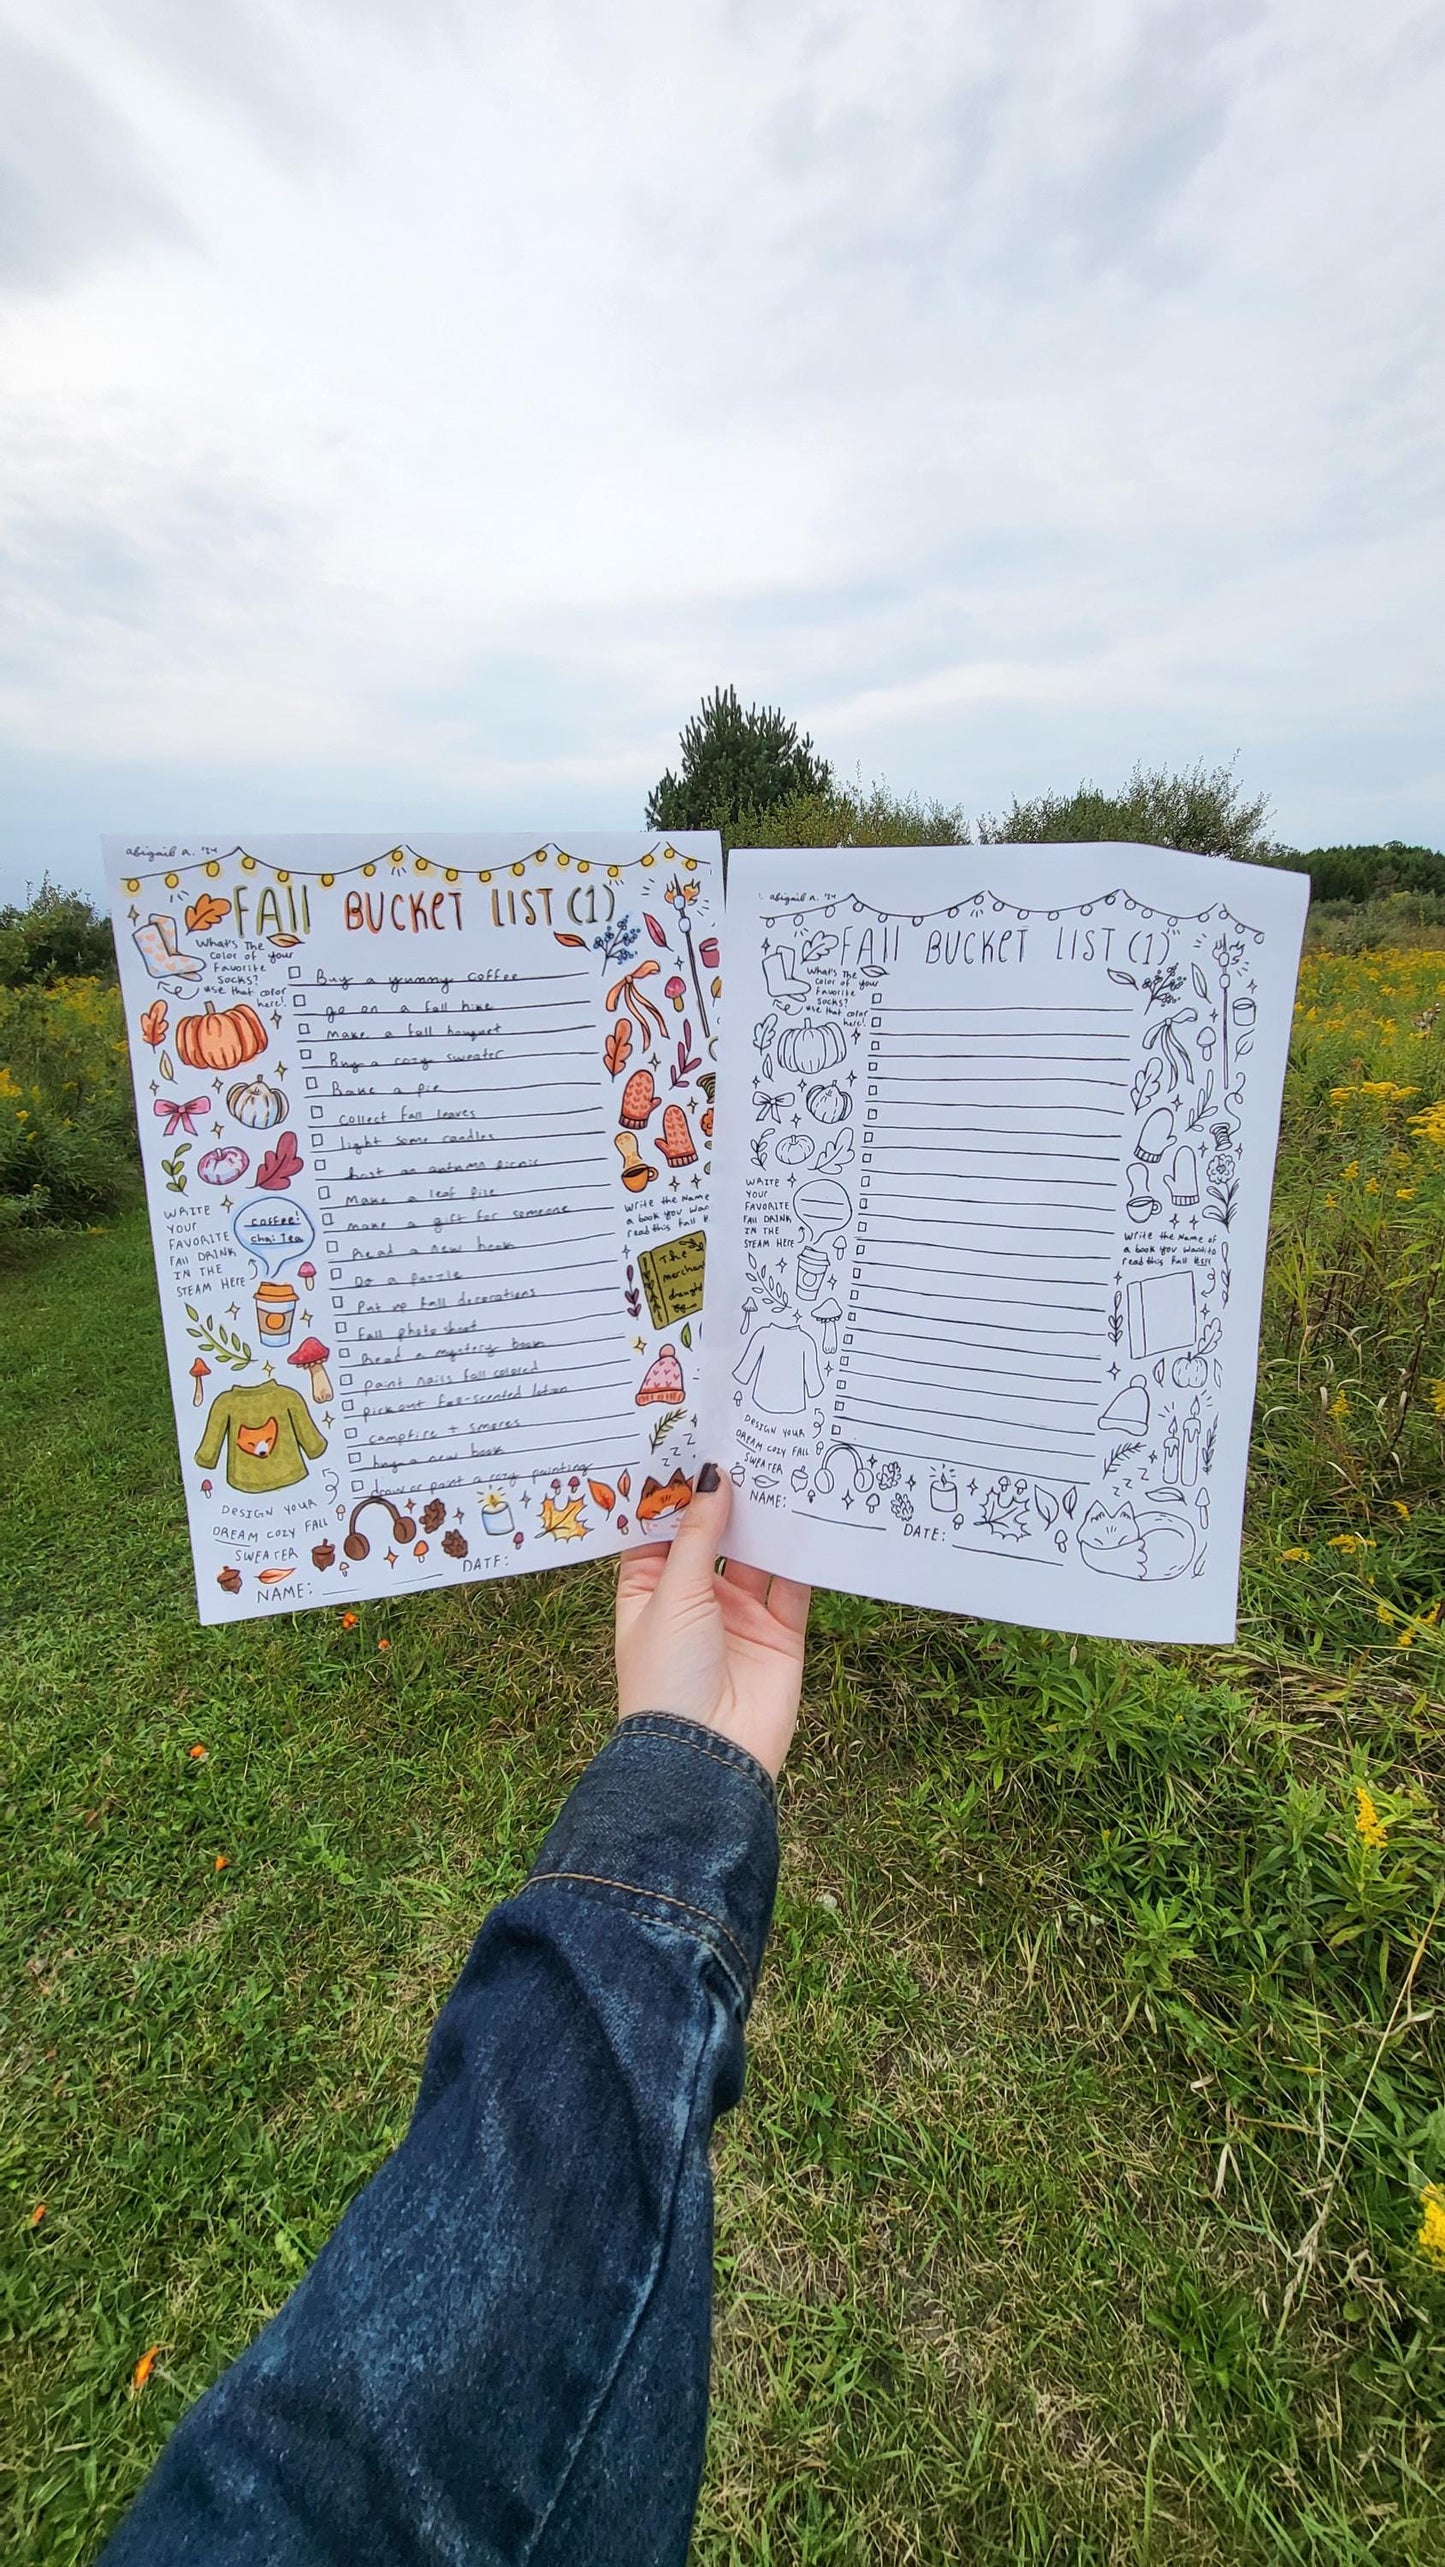 abigail a. '24
FALL BUCKET LIST (1)
What's The
color of your
Favorite
Socks?
use that color
here!
Buy a yummy coffee
go on a fall hike
Make a fall bouquet
Buy a cozy sweater
Bake a pie
collect fall leaves
light some candles
host an autumn picnic
Make a leaf pile
make a gift for someone
Read a new book
Do a puzzle
Put up fall decorations
Fall photo shoot
Read a mystery book
paint nails fall colored
pick out fall-scented lotion
campfire + smores
buy a new book
draw or paint a cozy painting
WRITE
YOUR
FAVORITE
FALL DRINK
IN THE
STEAM HERE
coffee!
chai Tea
Write the Name
a book you wan
read this fall
The
merchan
daught
DESIGN YOUR
DREAM COZY FALL
SWEATER
z z z
NAME:
DATE:
abigail a. '24
FALL BUCKET LIST (1)
What's The
color of your
Favorite
Socks?
use that color
here!
WRITE
YOUR
FAVORITE
FALL DRINK
IN THE
STEAM HERE
Write the Name of
a book you want to
read this fall here
DESIGN YOUR
DREAM COZY FALL
SWEATER
z z z
NAME:
DATE: